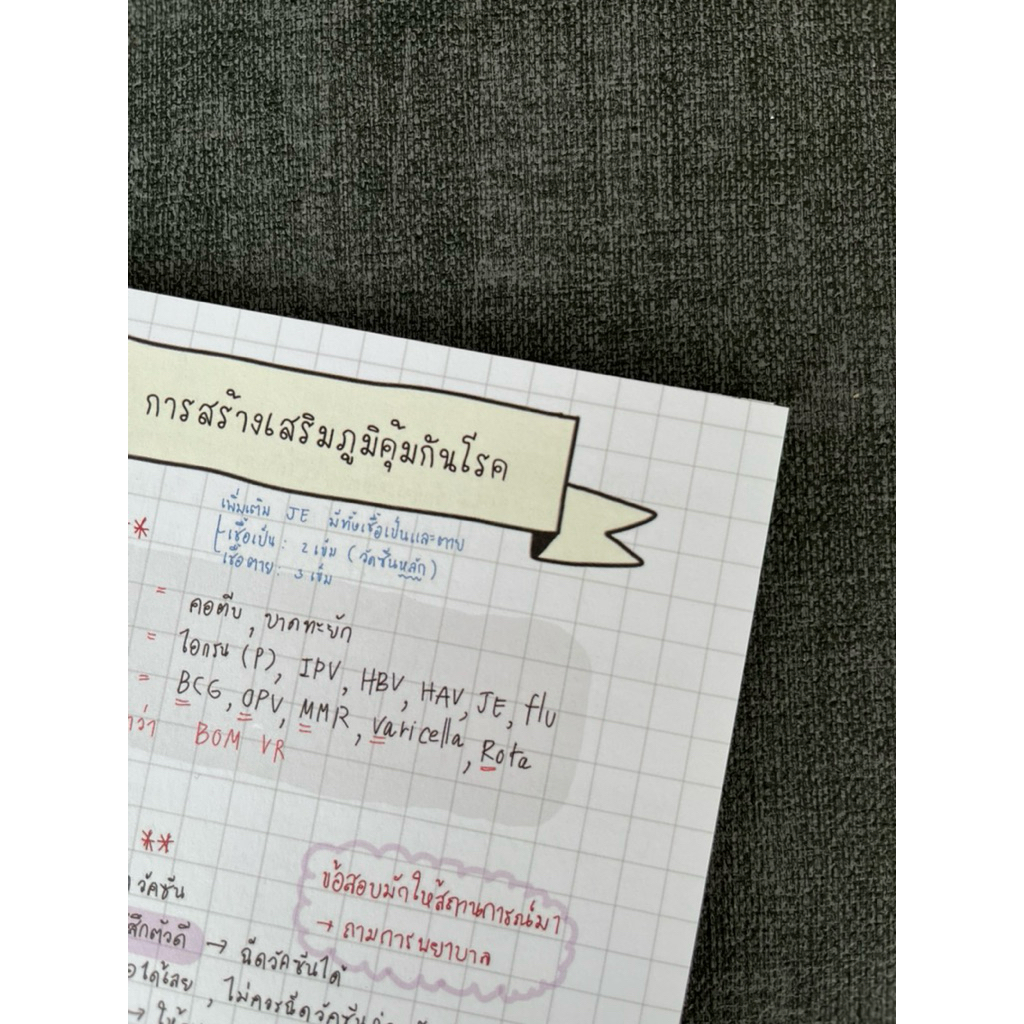 การสร้างเสริมภูมิคุ้มกันโรค
เพิ่มเติม JE มีทั้งเชื้อเป็นและตาย
เชื้อเป็น : 2 เข็ม (วัคซีนหลัก)
เชื้อตาย : 3 เข็ม
*
= คอตีบ, บาดทะยัก
= ไอกรน (P), IPV, HBV, HAV, JE, flu
= BCG, OPV, MMR, Varicella, Rota
ว่า BOM VR
**
วัคซีน
ข้อสอบมักให้สถานการณ์มา
→ ถามการพยาบาล
สึกตัวดี → ฉีดวัคซีนได้
ได้เลย, ไม่ควรฉีดวัคซีน
→ ให้